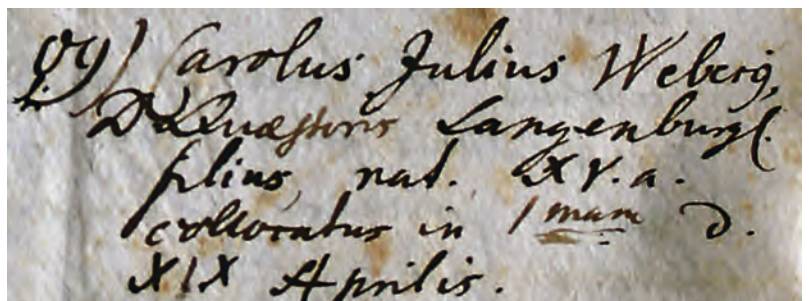 Carolus Julius Weber,
D. Quæstoris Langenburg.
filius, nat. XV. a.
collocatus in 1 mam d.
XIX Aprilis.